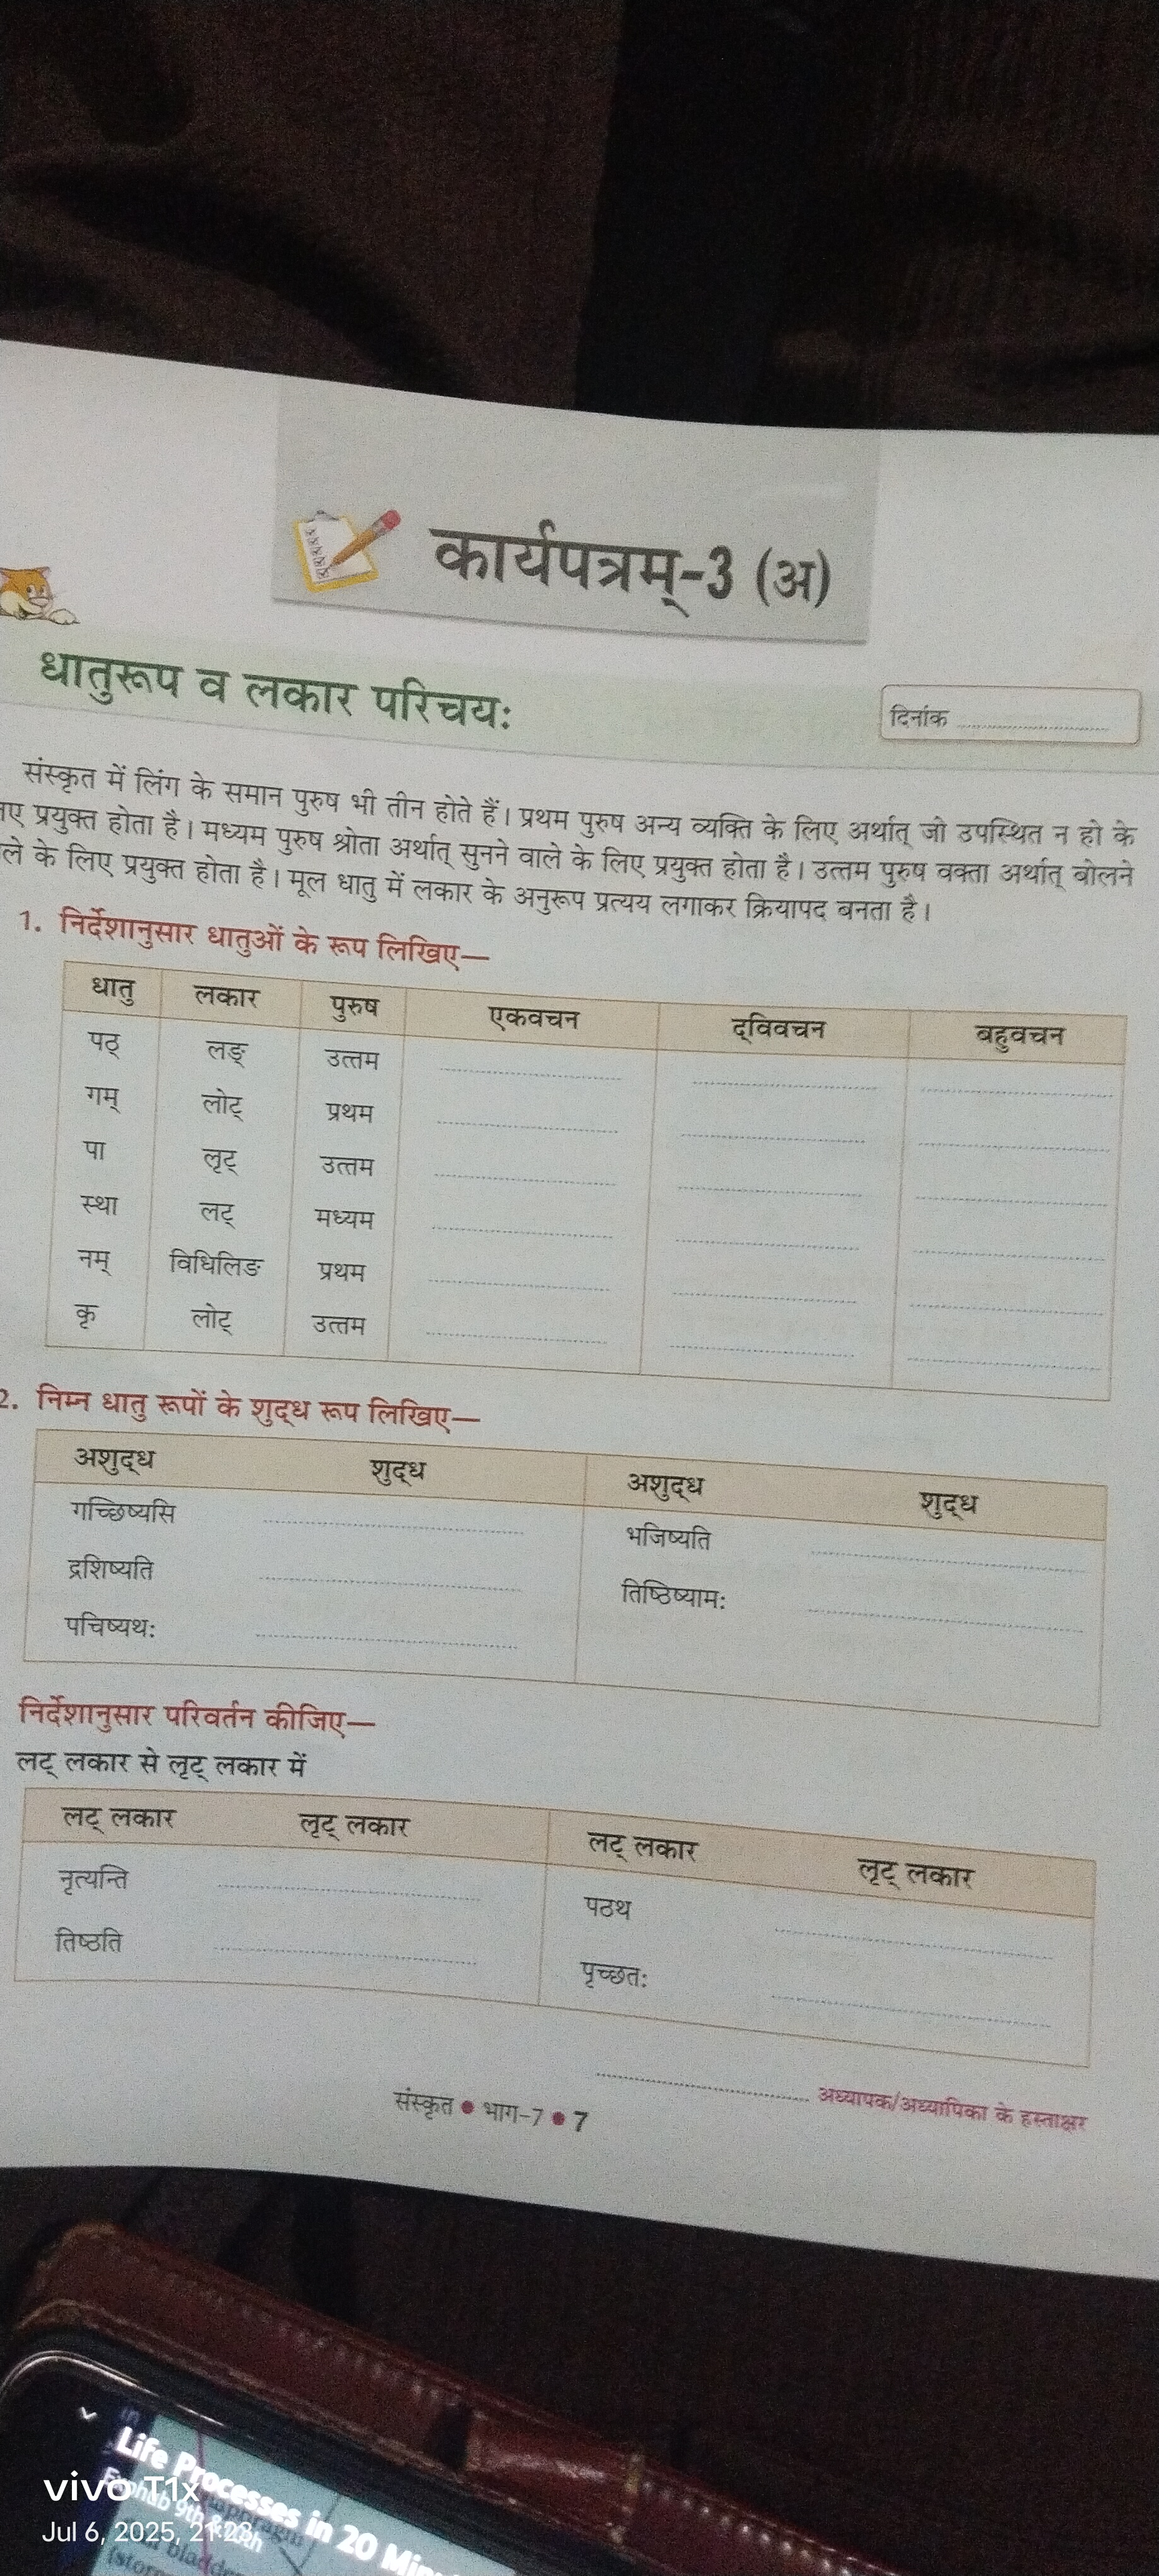 कार्यपत्रम्-3 (अ)
धातुरूप व लकार परिचयः
दिनांक
संस्कृत में लिंग के समान पुरुष भी तीन होते हैं। प्रथम पुरुष अन्य व्यक्ति के लिए अर्थात् जो उपस्थित न हो के
प्रयुक्त होता है। मध्यम पुरुष श्रोता अर्थात् सुनने वाले के लिए प्रयुक्त होता है। उत्तम पुरुष वक्ता अर्थात् बोलने
के लिए प्रयुक्त होता है। मूल धातु में लकार के अनुरूप प्रत्यय लगाकर क्रियापद बनता है।
1. निर्देशानुसार धातुओं के रूप लिखिए—
धातु लकार पुरुष एकवचन द्विवचन बहुवचन
पठ् लङ् उत्तम
गम् लोट् प्रथम
पा लृट् उत्तम
स्था लट् मध्यम
नम् विधिलिङ प्रथम
कृ लोट् उत्तम
2. निम्न धातु रूपों के शुद्ध रूप लिखिए—
अशुद्ध शुद्ध अशुद्ध शुद्ध
गच्छिष्यसि भजिष्यति
द्रशिष्यति तिष्ठिष्यामः
पचिष्यथः
निर्देशानुसार परिवर्तन कीजिए—
लट् लकार से लृट् लकार में
लट् लकार लृट् लकार लट् लकार लृट् लकार
नृत्यन्ति पठथ
तिष्ठति पृच्छतः
अध्यापक/अध्यापिका के हस्ताक्षर
संस्कृत ● भाग-7 ● 7
Life Processes in 20
vivo T1x
Jul 6, 2025, 21:23